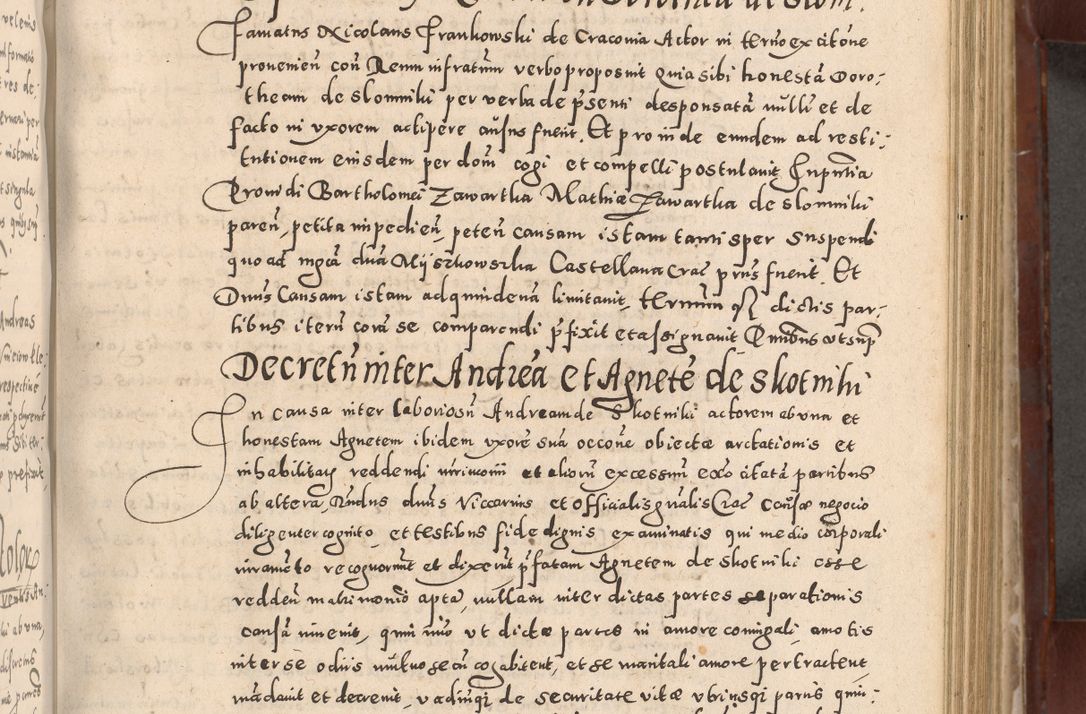 Famatus Nicolaus Frankowski de Cracovia Actor in termino ex citõne
provenieñ coñ Reum infratum verbo proposuit Quia sibi honestã Doro-
theam de slomniki per verba de pñsenti desponsatã nulli et de
facto in uxorem accipere ausus fuerit. Et proinde eundem ad resti-
tutionem eiusdem per dom̃ cogi et compelli postulavit In pñtia
Providi Bartholomei Zawartka Mathiæ Zawartka de slomniki
pareñ, petita impedieñ, peteñ causam istam tantisper suspendi
quoad mgcã dña Myszkowska Castellana Crac prius fuerit. Et
Dnus Causam istam ad quindenã limitavit, termum dictis par-
tibus iterũ corã se comparendi pfixit et assignavit
Decretũ inter Andreã et Agnetẽ de skotniki
In causa inter laboriosũ Andream de Skotniki actorem ab una et
honestam Agnetem ibidem uxorẽ suã occõne obiectæ arctationis et
inhabilitatis reddendi et aliorũ excessuũ citatã partibus
ab altera, Rñdus dnus Viccarius et Officialis gñalis Crac causæ negocio
diligenter cognito, et testibus fide dignis examinatis qui medio corporali
iuramẽto recognorunt et dixerũt pfatam Agnetem de skotniki esse
reddeñ matrimonio aptã, nullam inter dictas partes separationis
causã invenit, quin imo ut dictæ partes in amore coniugali, amotis
inter se odiis mutuo secũ cohabitent, et se maritali amore pertractent
mãdavit et decrevit, vadiuqz de securitate vitæ utriusqz partis